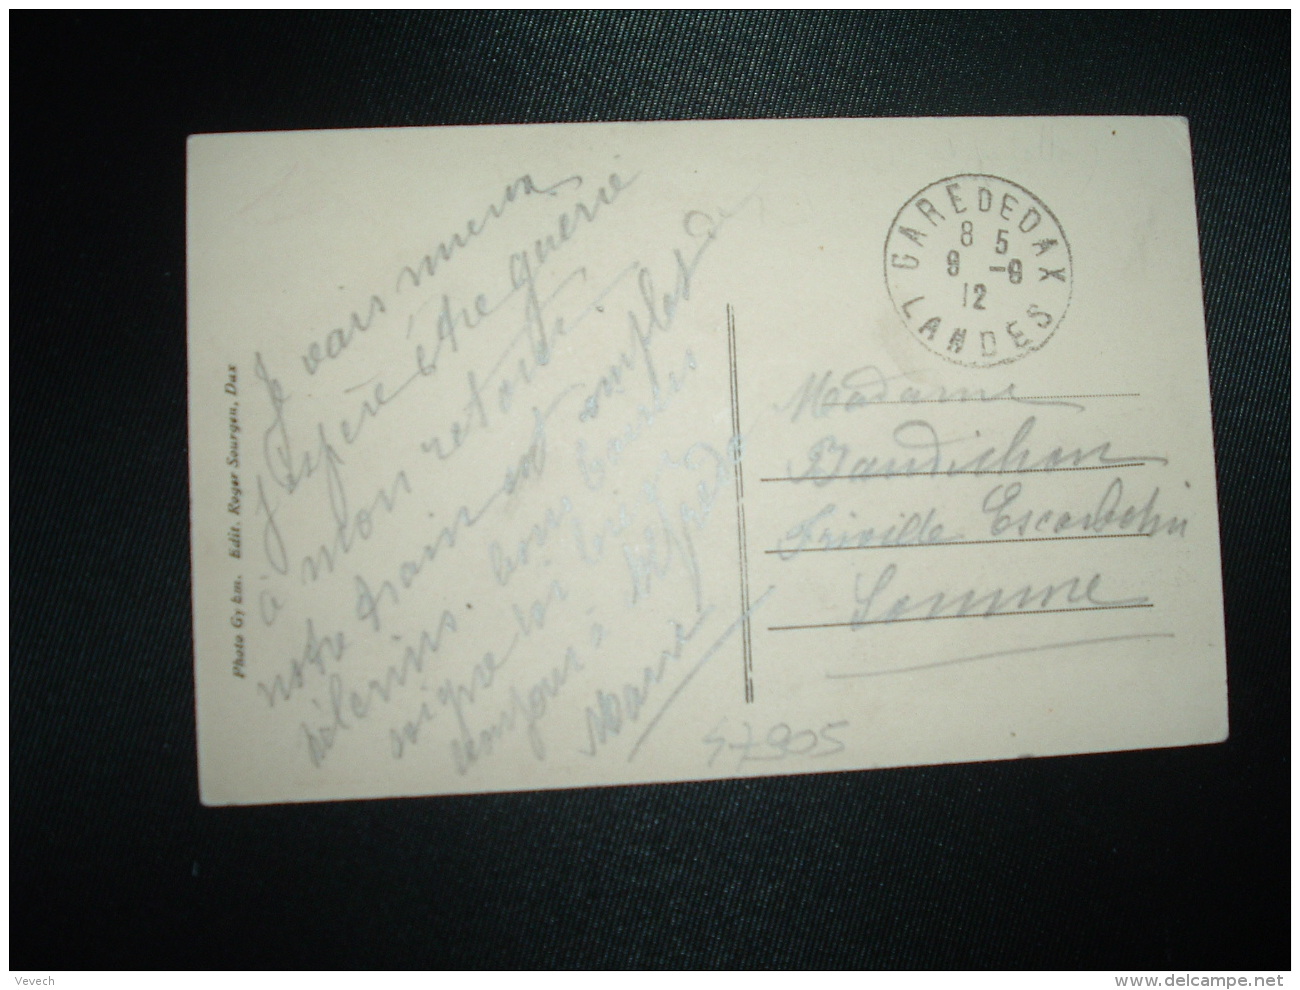 Je vais mieux
J'espère être guérie
à mon retour.
notre train est complet de
pèlerins. bons baisers
toujours à
Marie
GARE DE DAX
8 5
9 -9
12
LANDES
Madame
Baudichon
Friville Escarbotin
Somme
47905
Photo Gyhm. Edit. Roger Sourgen, Dax
Vevech
www.delcampe.net